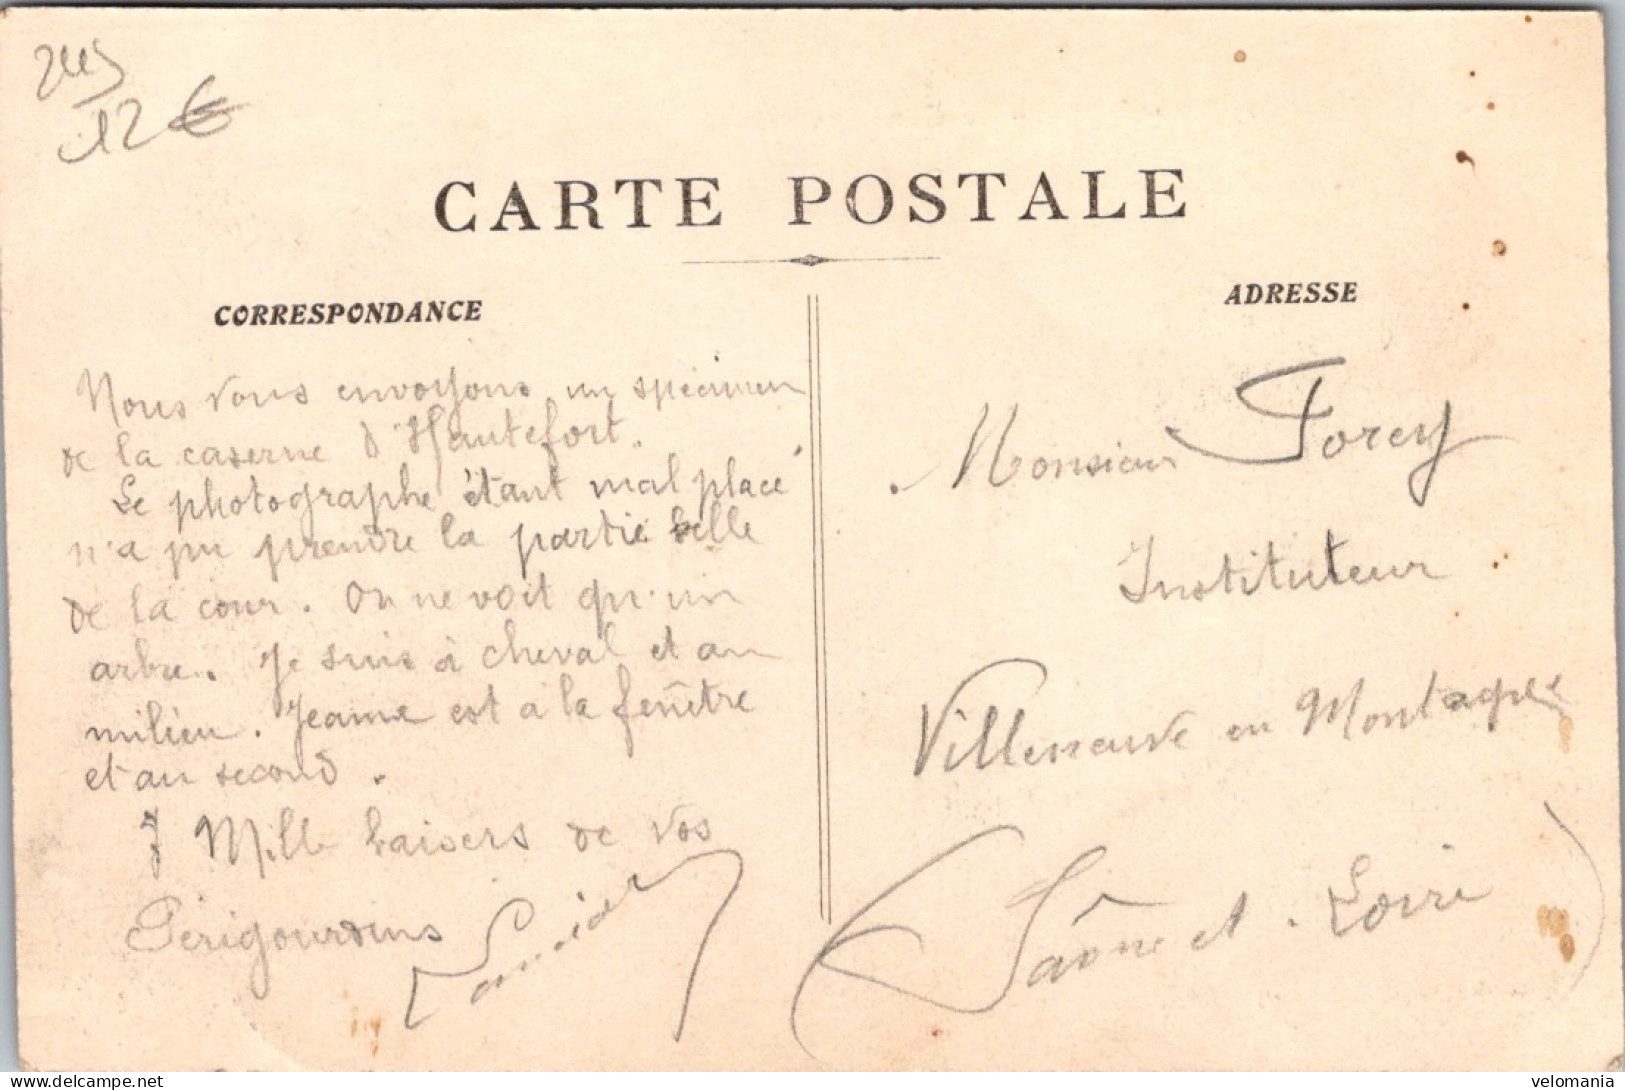 2445
12 €
CARTE POSTALE
CORRESPONDANCE
ADRESSE
Nous vous envoyons un spécimen
de la caserne d'Hautefort.
Le photographe étant mal placé
n'a pu prendre la partie belle
de la cour. On ne voit qu'un
arbre. Je suis à cheval et au
milieu. Jeanne est à la fenêtre
et au second.
Mille baisers de vos
Périgourdins
Monsieur Forey
Instituteur
Villeneuve en Montagne
Saône et Loire
delcampe.net
velomania